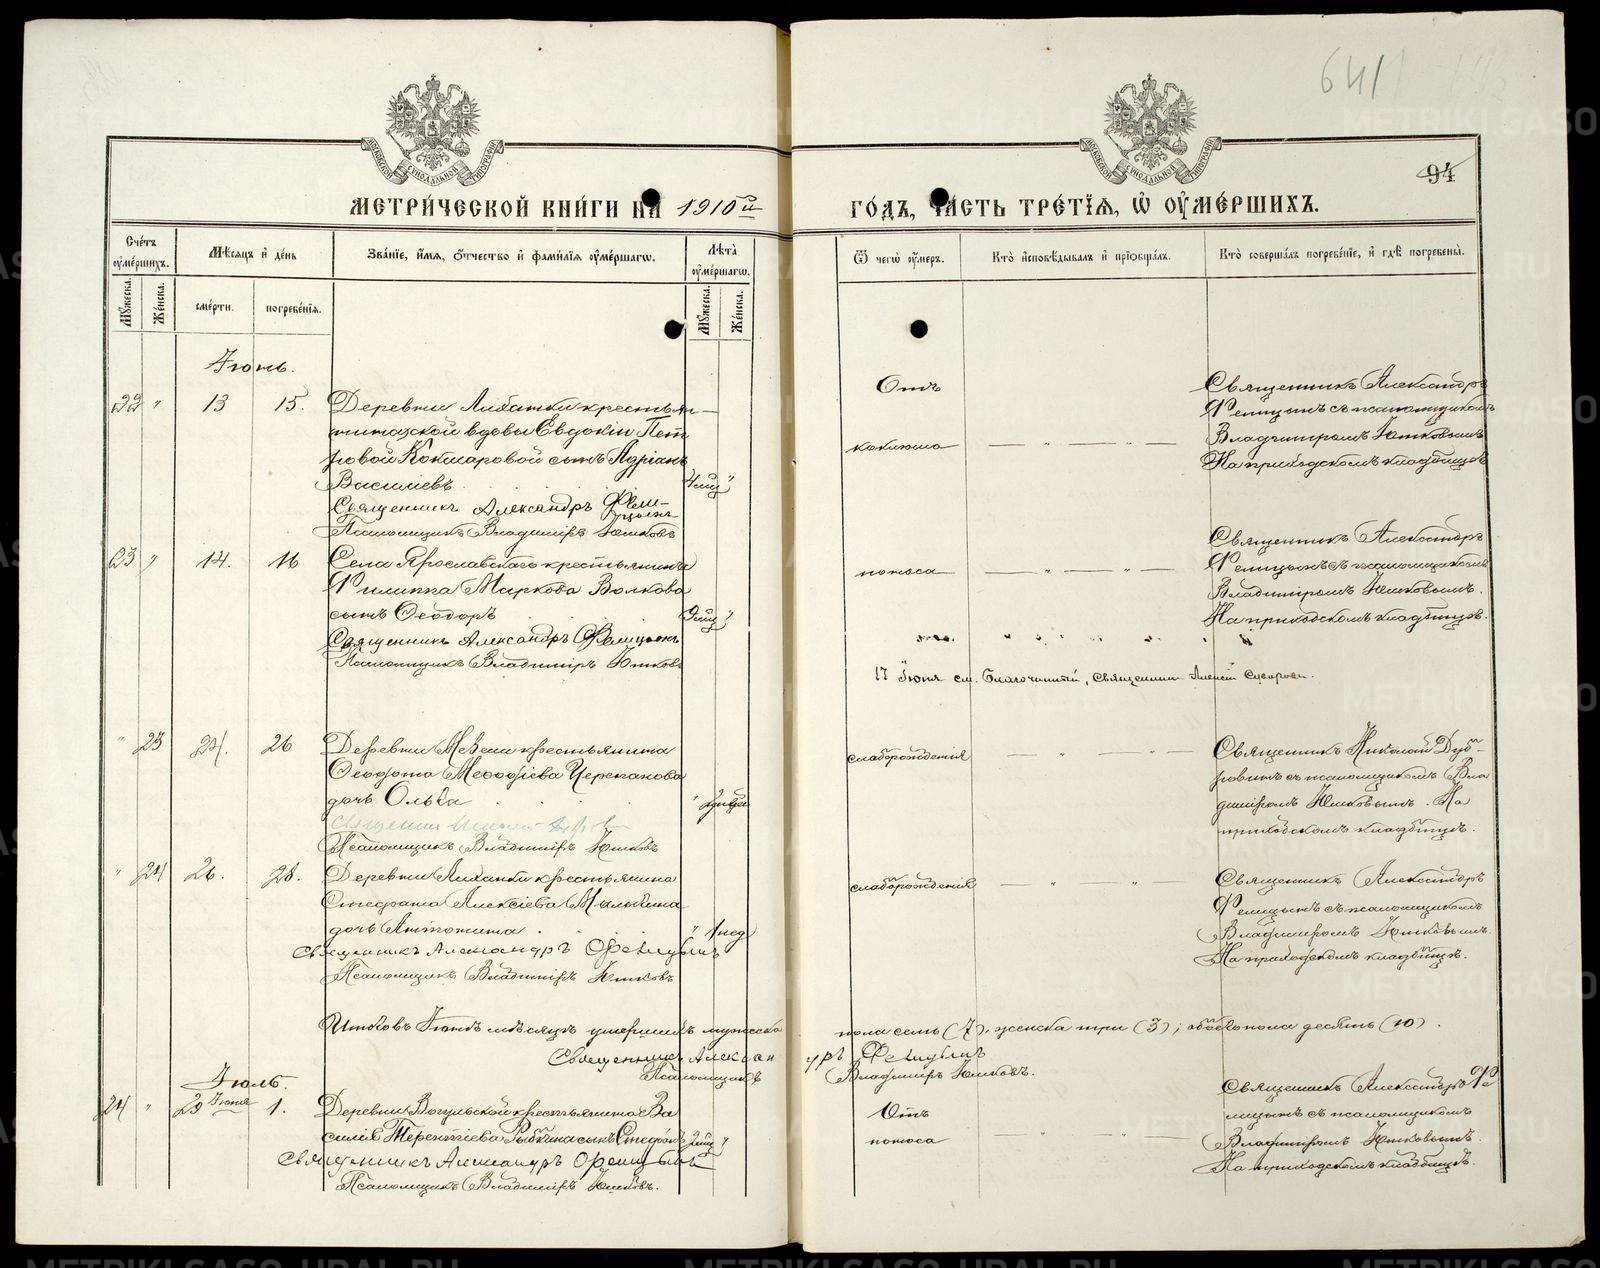 6411
94
МОСКОВСКОЙ СѴНОДАЛЬНОЙ ТИПОГРАФІИ
МОСКОВСКОЙ СѴНОДАЛЬНОЙ ТИПОГРАФІИ
МЕТРИ́ЧЕСКОЙ КНИ́ГИ НА 1910й
ГО́ДЪ, ЧА́СТЬ ТРЕ́ТІЯ, Ѡ҆ ОУ҆МЕ́РШИХЪ.
Сче́тъ оу҆ме́ршихъ.
Мꙋ́жеска.
Же́нска.
Мѣ́сяцъ и҆ де́нь
сме́рти.
погребе́нїя.
Зва́нїе, и҆́мя, ѻ҆́тчество и҆ фами́лїя оу҆ме́ршагѡ.
Лѣ́та оу҆ме́ршагѡ.
Мꙋ́жеска.
Же́нска.
Ѿ чегѡ̀ оу҆́меръ.
Кто̀ и҆сповѣ́дывалъ и҆ прїѡбща́лъ.
Кто̀ соверша́лъ погребе́нїе, и҆ гдѣ̀ погребены̀.
Іюнь.
22 " 13 15. Деревни Лиханки крестьян-
ниновской вдовы Евдокіи Пет
ровой Кокшаровой сынъ Адріанъ
Василиевъ 4 мц "
Священникъ Александръ Фели-
цынъ
Псаломщикъ Владиміръ Юшковъ
Отъ
Священникъ Александръ
Фелицынъ съ псаломщикомъ
Владимиромъ Юшковымъ
На приходскомъ кладбищѣ
23 " 14. 16 Села Ярославскаго крестьянина
Филиппа Маркова Волкова
сынъ Ѳеодоръ
Священникъ Александръ Фелицынъ
Псаломщикъ Владиміръ Юшковъ
поноса
Священникъ Александръ
Фелицынъ съ псаломщикомъ
Владимиромъ Юшковымъ.
На приходскомъ кладбищѣ.
17 Іюня см. Благочинный, Священникъ Алексій Суворовъ.
" 23 24. 26 Деревни крестьянина
Ѳеодота Меѳодіева Черепанова
дочь Ольга
Священникъ Николай Дубровинъ
Псаломщикъ Владиміръ Юшковъ
слаборожденія
Священникъ Николай Дуб-
ровинъ съ псаломщикомъ Вла
диміромъ Юшковымъ. На
приходскомъ кладбищѣ.
" 24 26. 28. Деревни Лиханки крестьянина
Стефана Алексіева Малыгина
дочь Антонина " 1 нед
Священникъ Александръ Фелицынъ
Псаломщикъ Владиміръ Юшковъ
слаборожденія
Священникъ Александръ
Фелицынъ съ псаломщикомъ
Владимиромъ Юшковымъ
На приходскомъ кладбищѣ.
Итого въ Іюнѣ мѣсяцѣ умершихъ мужеска пола семь (7), женска три (3); обоего пола десять (10).
Священникъ Александръ Фелицынъ
Псаломщикъ Владиміръ Юшковъ.
Іюль.
24 " 29 Іюня 1. Деревни Вогульской крестьянина Ва
силія Терентіева Рыбкина сынъ Стефанъ 2 мц "
Священникъ Александръ Фелицынъ
Псаломщикъ Владиміръ Юшковъ.
Отъ
поноса
Священникъ Александръ Фе
лицынъ съ псаломщикомъ
Владимиромъ Юшковымъ.
На приходскомъ кладбищѣ.
METRIKI.GASO-URAL.RU